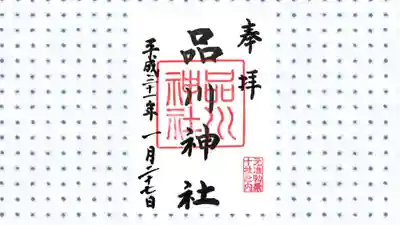 奉拝
品川神社
品川神社
平成二十一年 一月二十七日
元准勅祭
十社之内